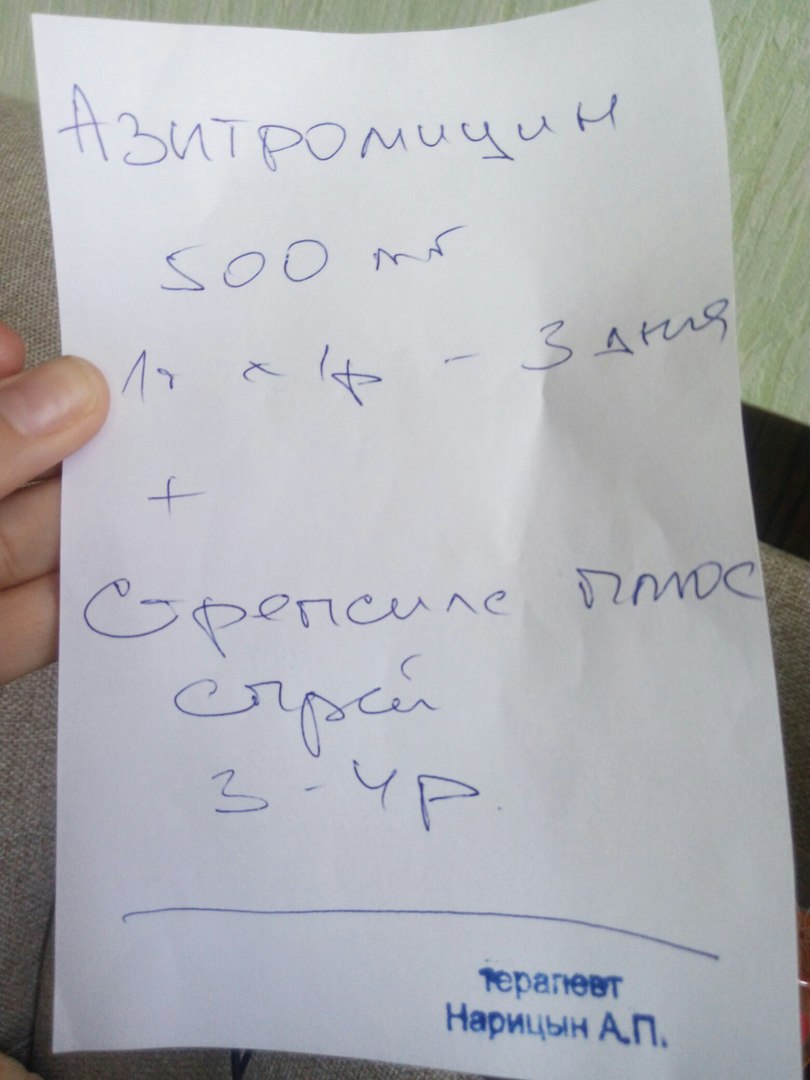 Азитромицин
500 мг
1т х 1р - 3 дня
+
Стрепсилс плюс
спрей
3-4 р.
терапевт
Нарицын А.П.